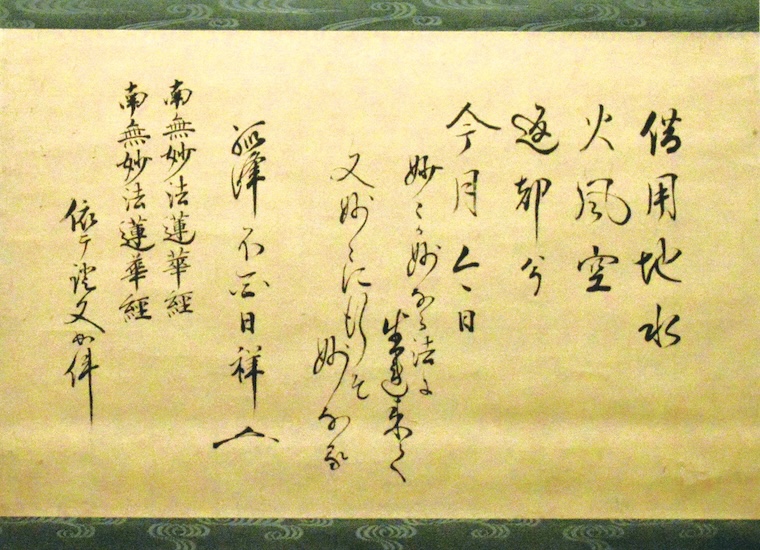 借用地水
火風空
返却兮
今月今日
妙々か妙なる法に
生連来て
又妙々に行そ
妙なる
日祥
南無妙法蓮華經
南無妙法蓮華經
依テ證文如件